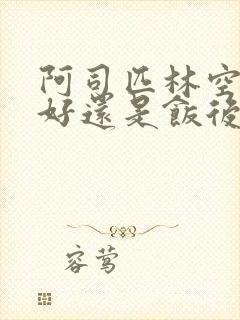 阿司匹林空
好還是飯後
容莺